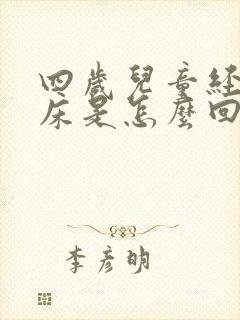 四歲兒童経
床是怎麼回
李彥明